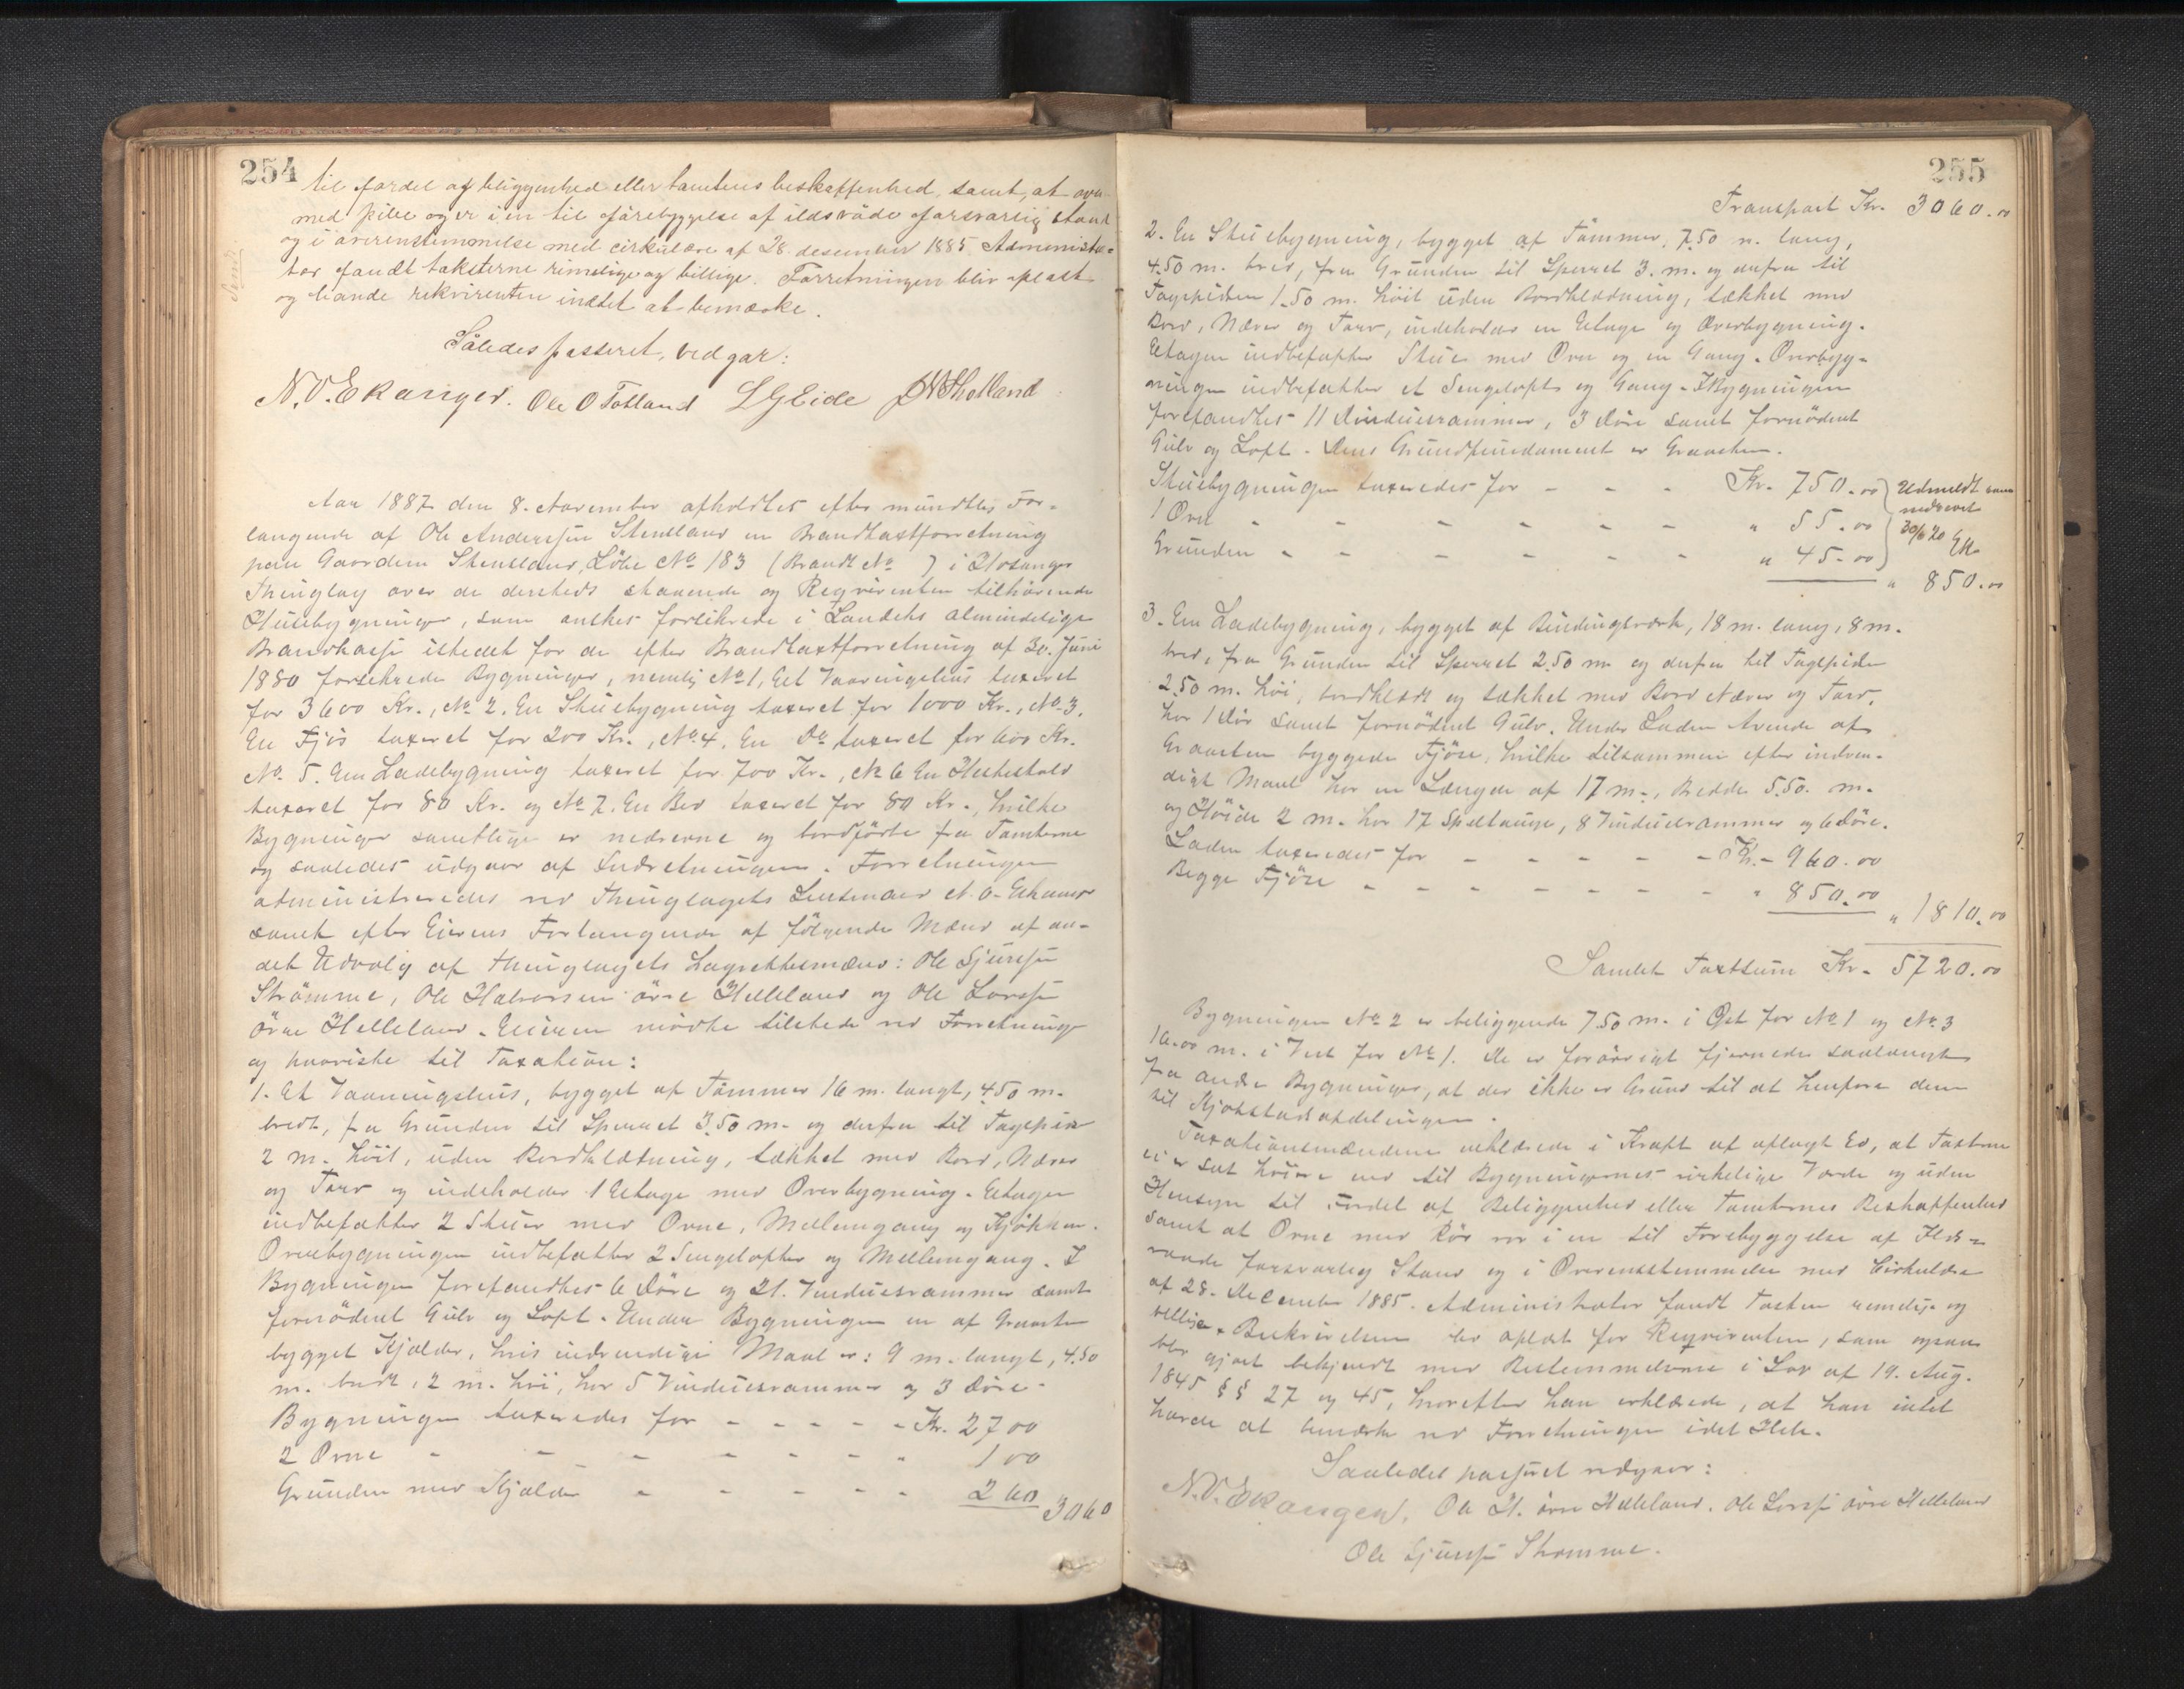 254
til fordel af beliggenhed eller tomtens beskaffenhed, samt, at ovn
med pibe og er i en til forebyggelse af ildsvåde forsvarlig stand
og i overenstemmelse med cirkulære af 28. desember 1885. Administra-
tor fandt taksterne rimelige og billige. Forretningen blev oplæst
og havde rekvirenten indtet at bemærke.
Således passeret, vedgår:
N. O. Ekanger. Ole O Totland L G Eide
Aar 1887 den 8. November afholdtes efter mundtlig For-
langende af Ole Anderssen Stensland en Brandtaxtforretning
paa Gaarden Stensland, Løbe No 183 (Brandt No ) i Hosanger
Thinglag over de dersteds staaende og Reqvirenten tilhørende
Husebygninger, som ønskes forsikrede i Landets almindelige
Brandkasse istedet for de efter Brandtaxtforretning af 30. Juni
1880 forsikrede Bygninger, nemlig No 1, Et Vaaningshus taxeret
for 3600 Kr., No 2. En Stuebygning taxeret for 1000 Kr., No 3.
En Fjøs taxeret for 200 Kr., No 4. En Do taxeret for 600 Kr.
No 5. Em Ladebygning taxeret for 700 Kr., No 6 En Hestestald
taxeret for 80 Kr. og No 7. En Bod taxeret for 80 Kr., hvilke
Bygninger samtlige er nedrevne og bortførte fra Tomterne
og saaledes udgaar af Indretningen. Forretningen
administreredes ved Thinglagets Lensmand N. O. Ekanger
samt efter Eierens Forlangende af følgende Mænd af an-
det Udvalg af Thinglagets Lagrettesmænd: Ole Sjursen
Strømme, Ole Halvorsen øvre Helleland og Ole Larssen
øvre Helleland. Eieren mødte tilstede ved Forretningen
og paaviste til Taxation:
1. Et Vaaningshus, bygget af Tømmer 16 m. langt, 4.50 m.
bredt, fra Grunden til Sperret 3.50 m. og derfra til Tagspidsen
2 m. høit, uden Bordklædning, tækket med Bord, Næver
og Torv og indeholder 1 Etage med Overbygning. Etagen
indbefatter 2 Stuer med Ovne, Mellemgang og Kjøkken.
Overbygningen indbefatter 2 Sengelofter og Mellemgang. I
Bygningen forefandtes 6 Døre og 21. Vinduesrammer samt
fornødent Gulv og Loft. Under Bygningen en af Graasten
bygget Kjælder, hvis indvendige Maal er: 9 m. langt, 4.50
m. bredt, 2 m. høi, har 5 Vinduesrammer og 3 Døre.
Bygningen taxeredes for - - - - - Kr. 2700
2 Ovne - - - - - - - 100
Grunden med Kjælder - - - - - 260 3060
255
Transport Kr. 3060.00
2. En Stuebygning, bygget af Tømmer, 7.50 m. lang,
4.50 m. bred, fra Grunden til Sperret 3. m. og derfra til
Tagspidsen 1.50 m. høit uden Bordklædning, tækket med
Bord, Næver og Torv, indeholder en Etage og Overbygning.
Etagen indbefatter Stue med Ovn og en Gang. Overbyg-
ningen indbefatter et Sengeloft og Gang. I Bygningen
forefandtes 11 Vinduesrammer, 3 Døre samt fornødent
Gulv og Loft. Dens Grundfundament er Graasten.
Stuebygningen taxeredes for - - - Kr. 750.00
1 Ovn - - - - - - " 55.00
Grunden - - - - - - " 45.00
Udmeldt som
nedrevet
" 850.00
3. Em Ladebygning, bygget af Bindingsværk, 18 m. lang, 8 m.
bred, fra Grunden til Sperret 2.50 m og derfra til Tagspidsen
2.50 m. høi, bordklædt og tækket med Bord Næver og Torv,
har 1 Dør samt fornødent Gulv. Under Laden tvende af
Graasten byggede Fjøse, hvilke tilsammen efter indven-
digt Maal har en Længde af 17 m., Bredde 5.50. m.
og Høide 2 m. har 17 Spiltauge, 8 Vinduesrammer og 6 Døre.
Laden taxeredes for - - - - - Kr. 960.00
Begge Fjøse - - - - - - - " 850.00
" 1810.00
Samlet Taxtsum Kr. 5720.00
Bygningen No 2 er beliggende 7.50 m. i Øst for No 1 og No 3
16.00 m. i Vest for No 1. De er forøvrigt fjernede saalangt
fra andre Bygninger, at der ikke er Grund til at henføre dem
til Kjøbstadsafdelingen.
Taxationsmændene erklærede i Kraft af aflagt Ed, at Taxterne
ei er sat høiere end til Bygningernes virkelige Værde og uden
Hensyn til Fordel af Beliggenhed eller Tomternes Beskaffenhed
samt at Ovne med Rør var i en til Forebyggelse af Ilds-
vaade forsvarlig Stand og i Overensstemmelse med Cirkulære
af 28. December 1885. Administrator fandt Taxten rimelig og
billige. Beskrivelsen blev oplæst for Reqvirenten, som ogsaa
blev gjort bekjendt med Bestemmelserne i Lov af 19. Aug.
1845 §§ 27 og 45, hvorefter han erklærede, at han intet
havde at bemærke ved Forretningen i det Hele.
Saaledes passeret vedgaar:
N. O. Ekanger. Ole H. øvre Helleland. Ole Larssen øvre Helleland
Ole Sjursen Strømme.